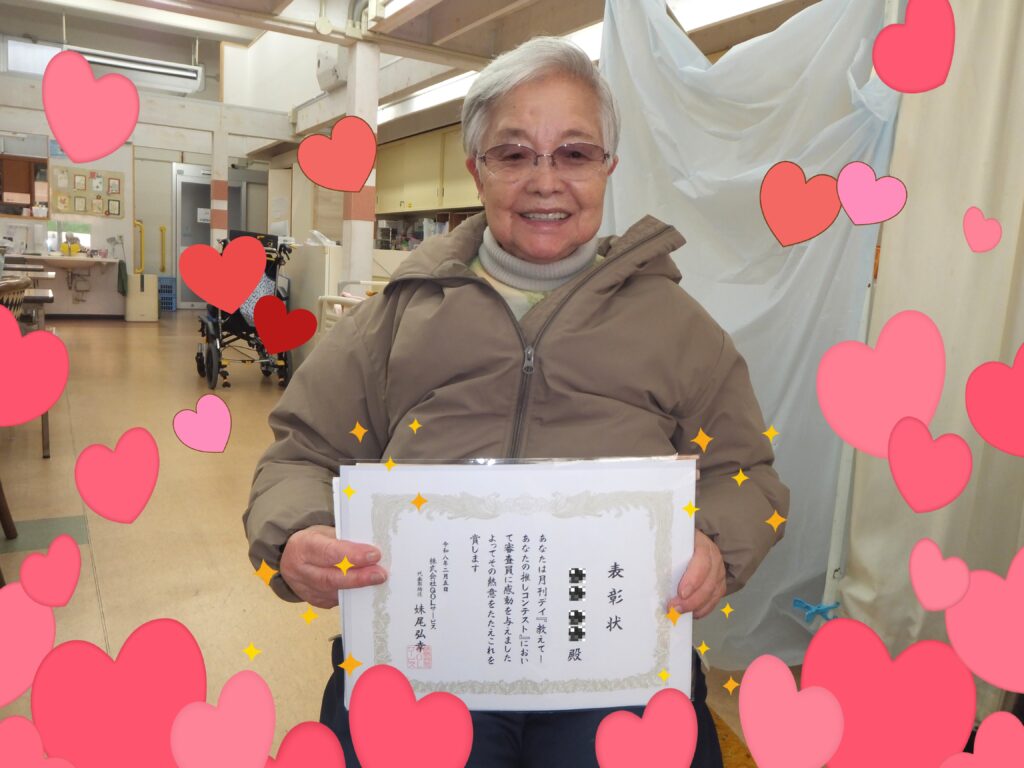 表彰状
殿
あなたは月刊デイ『教えて!
あなたの推しコンテスト』におい
て審査員に感動を与えました
よってその熱意をたたえこれを
賞します
令和八年二月五日
株式会社QOLサービス
代表取締役 妹尾弘幸